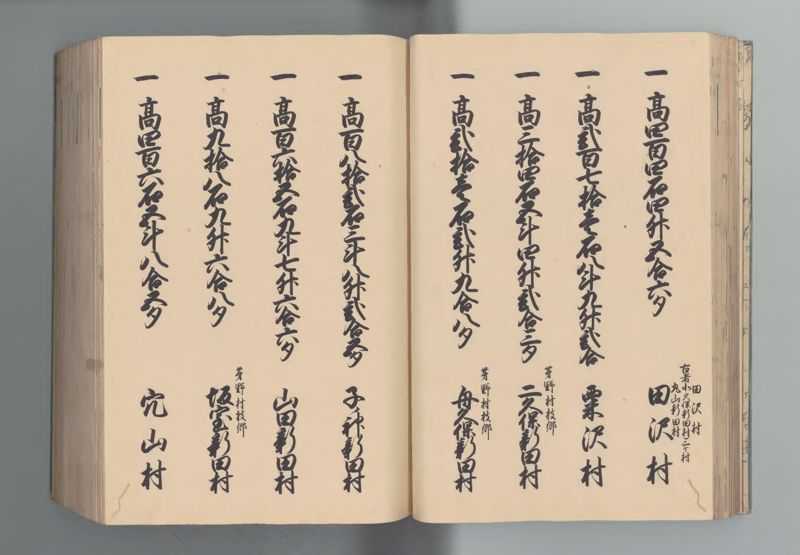 一 高四百四石四升五合六夕
田沢村
古者小久保新田村三ヶ村
丸山新田村
田沢村
一 高弐百七拾壱石八斗九升弐合
粟沢村
一 高三拾四石五斗四升弐合三夕
茅野村枝郷
二久保新田村
一 高弐拾壱石弐升九合八夕
茅野村枝郷
舟久保新田村
一 高百八拾弐石三斗八升弐合五夕
子ノ神新田村
一 高百六拾五石九斗七升六合六夕
山田新田村
一 高九拾八石九升六合八夕
茅野村枝郷
坂室新田村
一 高四百六石五斗八合五夕
穴山村